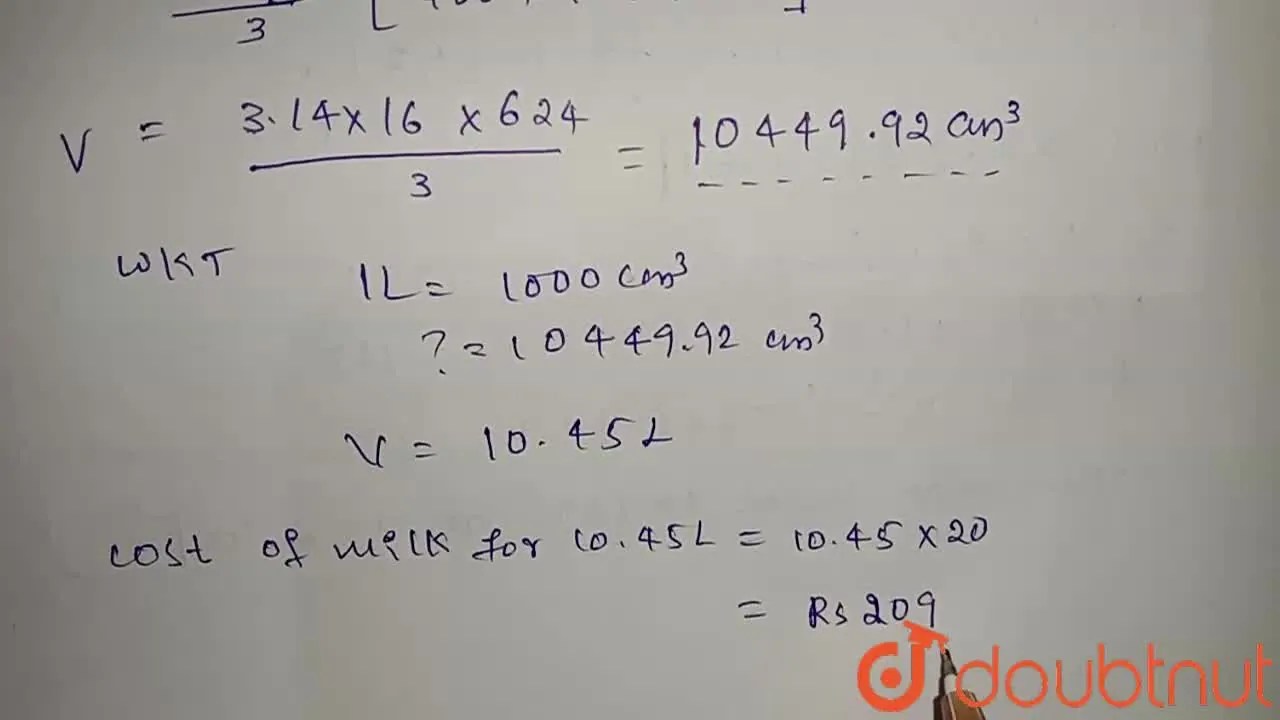 3 [
V = 3.14 x 16 x 624 / 3 = 10449.92 cm³
WKT 1L = 1000 cm³
? = 10449.92 cm³
V = 10.45L
cost of milk for 10.45L = 10.45 x 20
= Rs 209
doubtnut